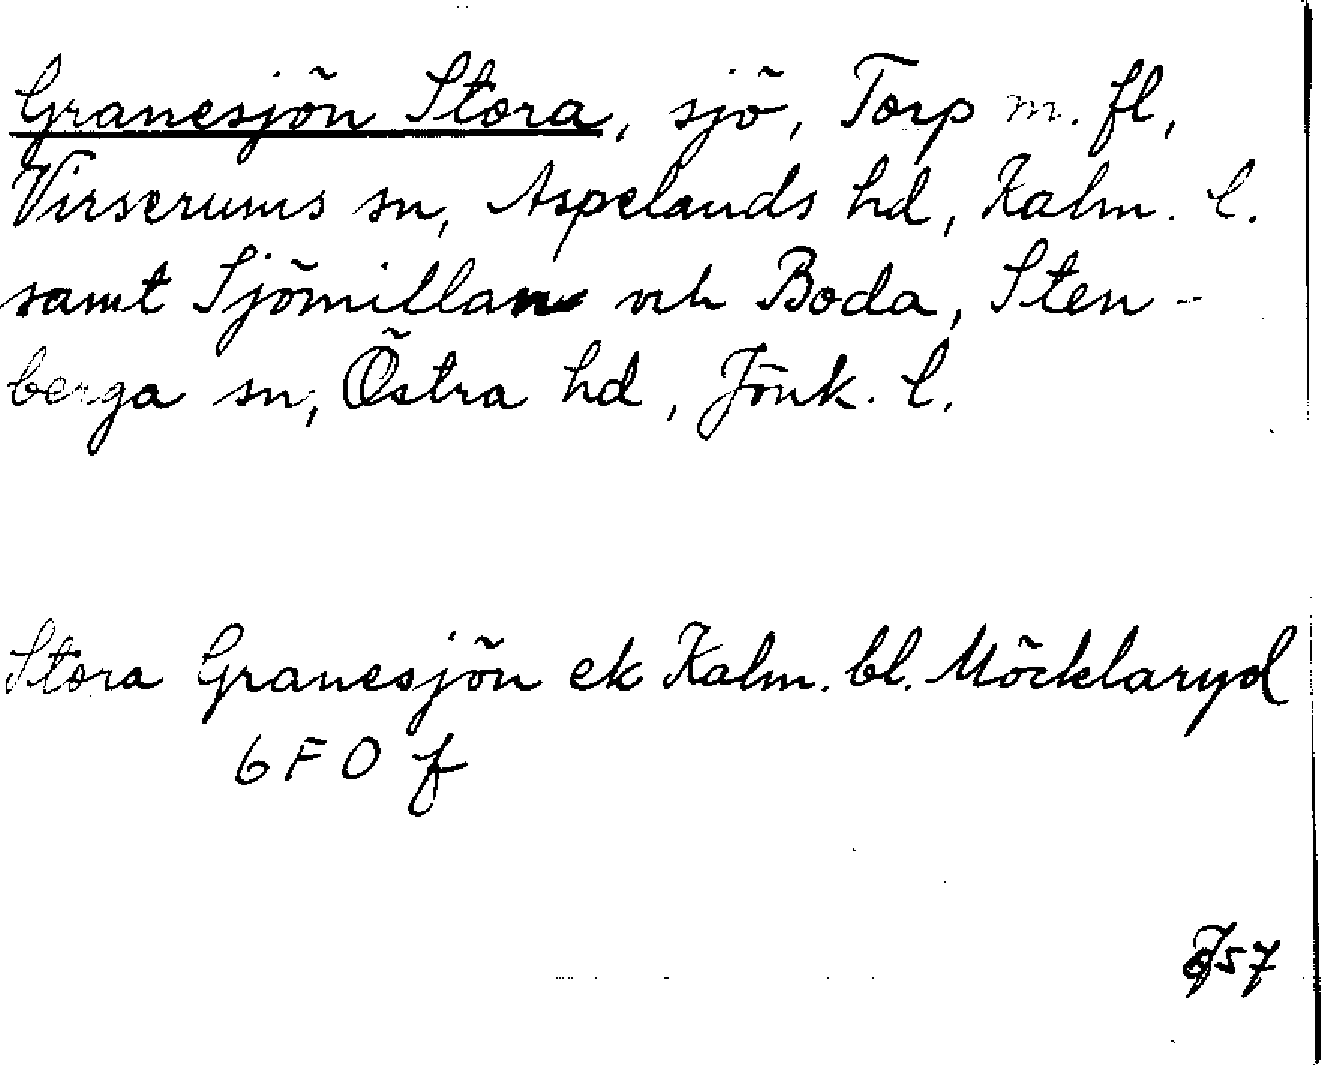 Granesjön Stora, sjö, Torp m. fl,
Virserums sn, Aspelands hd, Kalm. l.
samt Sjömillan och Boda, Sten-
berga sn, Östra hd, Jönk. l.
Stora Granesjön ek Kalm. bl. Möcklaryd
6 F O f
57